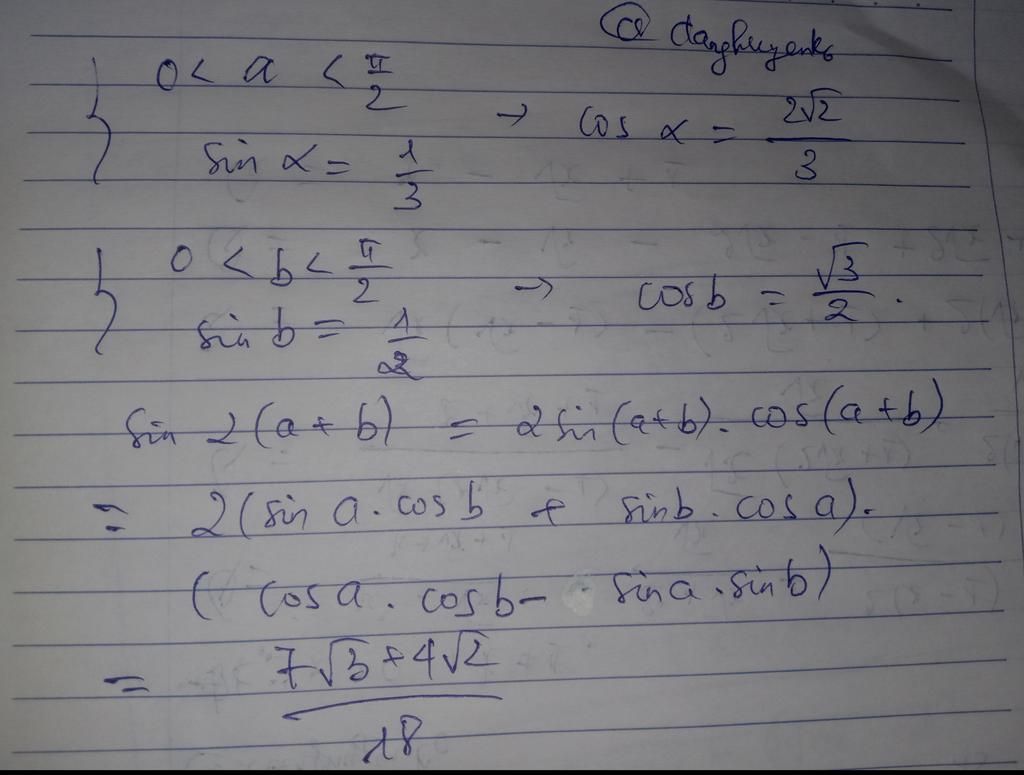 @ danghuyenk6
{ 0 < a < π/2
sin α = 1/3 → cos α = 2√2/3
{ 0 < b < π/2
sin b = 1/2 → cos b = √3/2 .
sin 2(a + b) = 2 sin (a+b). cos (a+b)
= 2(sin a . cos b + sin b . cos a).
( cos a . cos b - sin a . sin b)
= 7√3 + 4√2 / 18